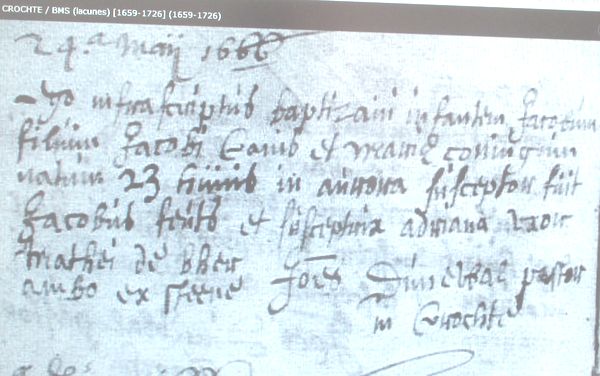 CROCHTE / BMS (lacunes) [1659-1726] (1659-1726)
24.a maij 1666
Ego infrascriptus baptizavi infantem Jacobum
filium Jacobi et mariæ coniugum
natum 23 huius in aurora susceptor fuit
Jacobus feuts et susceptrix adriana uxor
mathei de
ambo ex steene Joes pastor
in Crochte